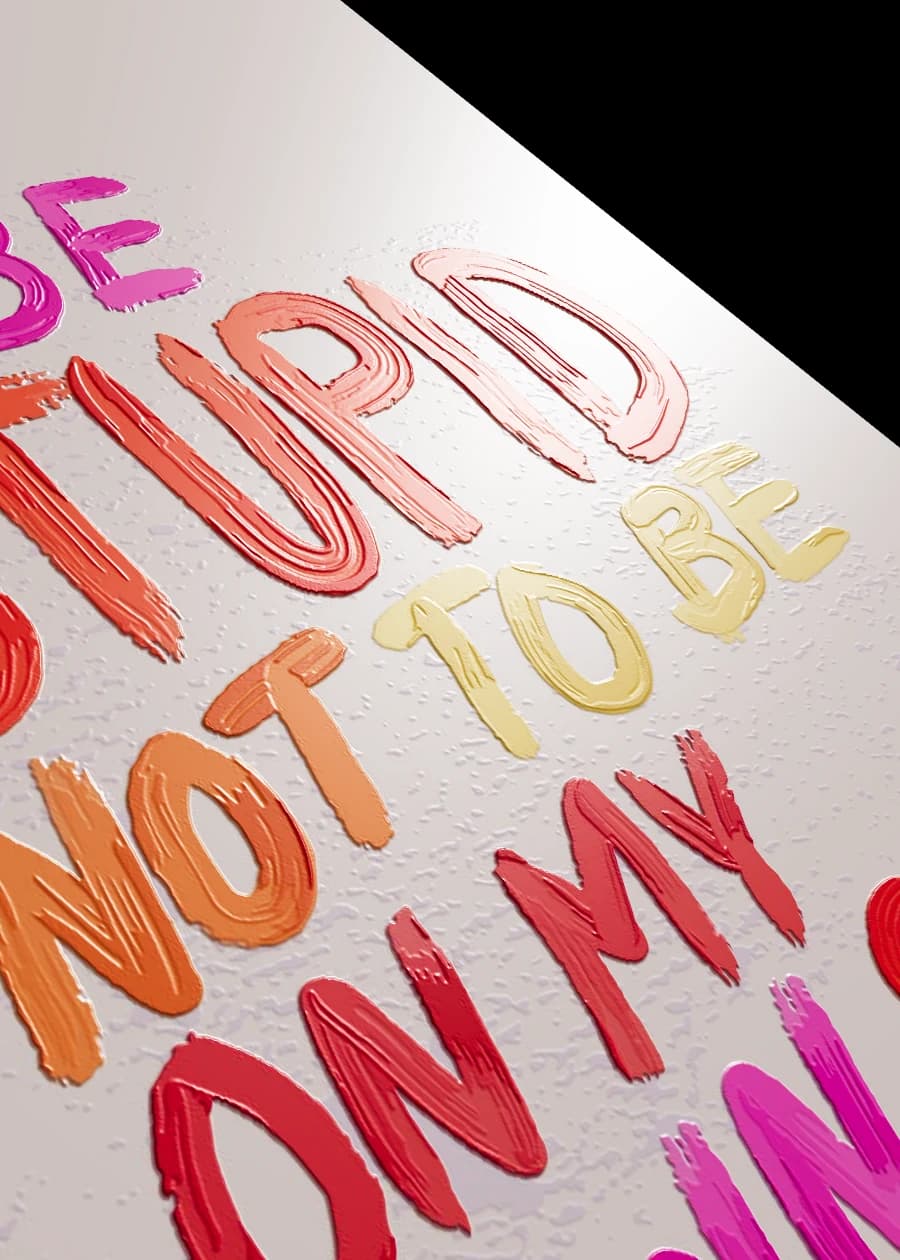 BE
TUPID
NOT TO BE
ON MY
IN